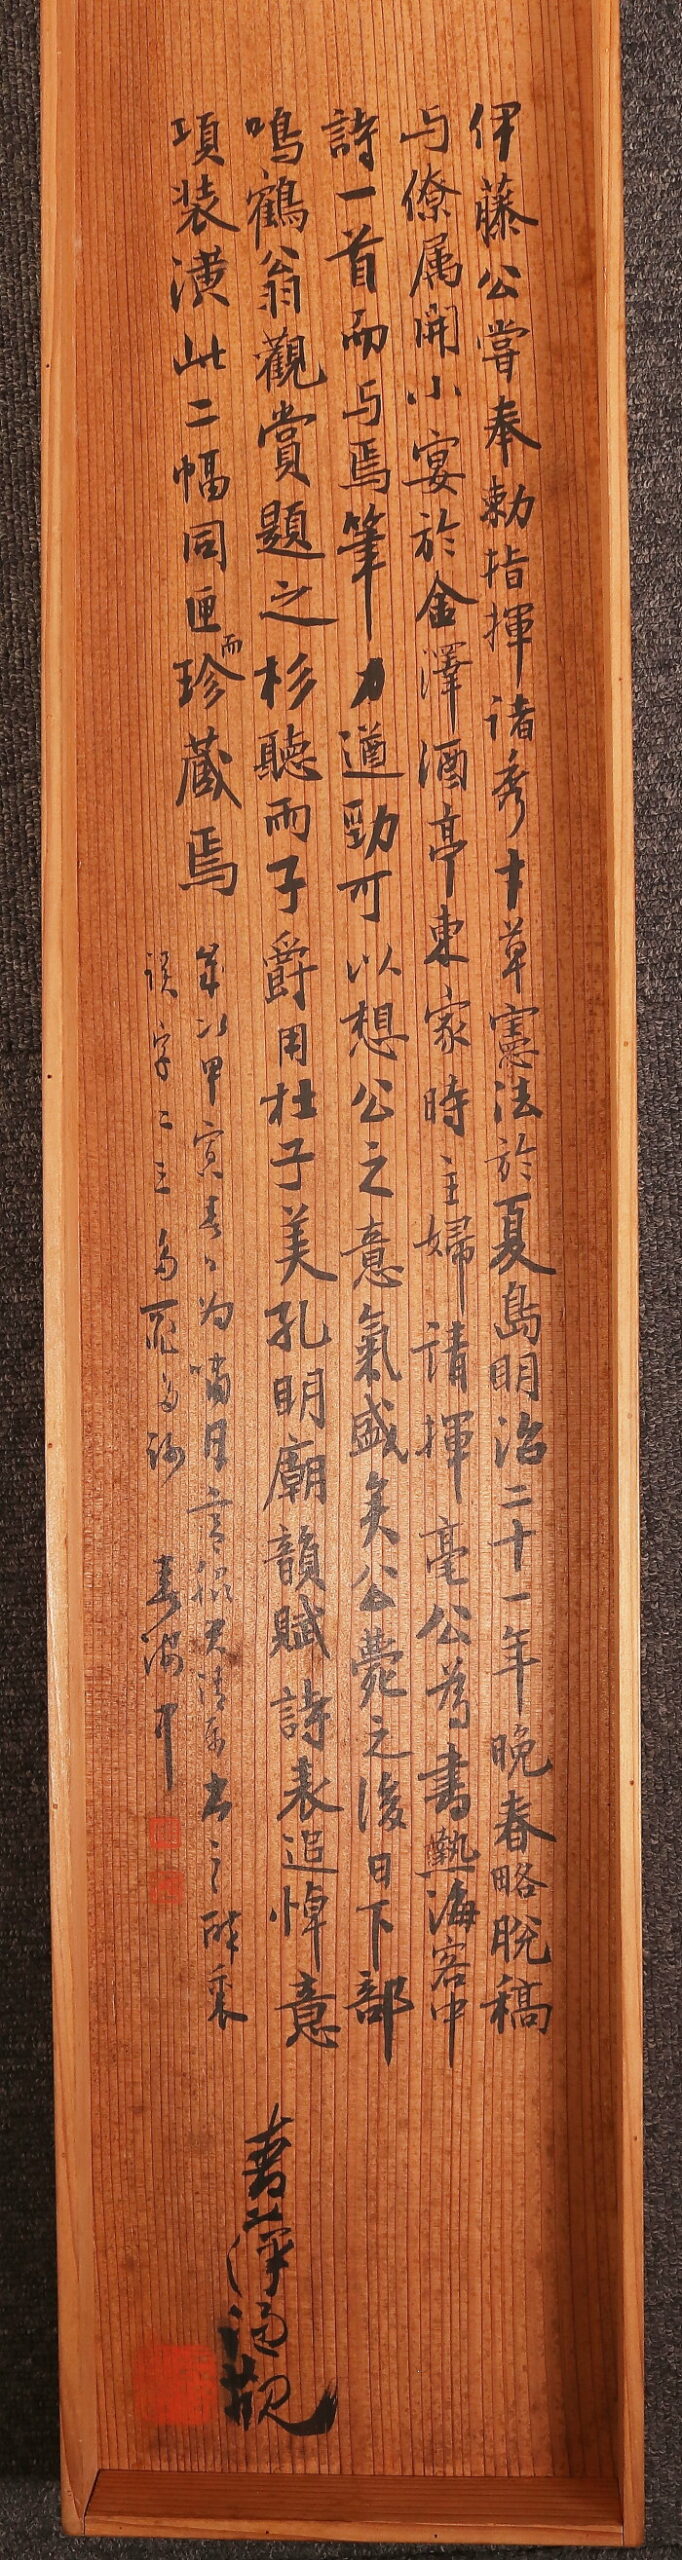 伊藤公嘗奉勅指揮諸秀才草憲法於夏島明治二十一年晩春略脱稿
与僚属開小宴於金澤酒亭東家時主婦請揮毫公為書熱海客中
詩一首而与焉筆力遒勁可以想公之意氣盛矣公薨之後日下部
鳴鶴翁觀賞題之杉聽雨子爵用杜子美孔明廟韻賦詩表追悼意
項装潢此二幅同匣而珍蔵焉
歳次甲寅春日為嘯月
書之酔裏
誤字二三
春